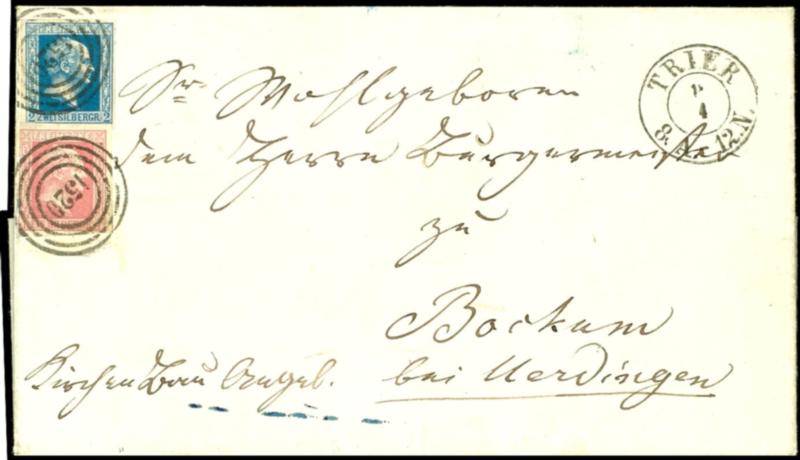 FREIMARKE
2 ZWEI SILBERGR. 2
1520
1520
TRIER
8
4
8. A. - 12. N.
Sr. Wohlgeboren
dem Herrn Bürgermeister
zu
Bockum
bei Uerdingen
Kirchen Bau Angel.